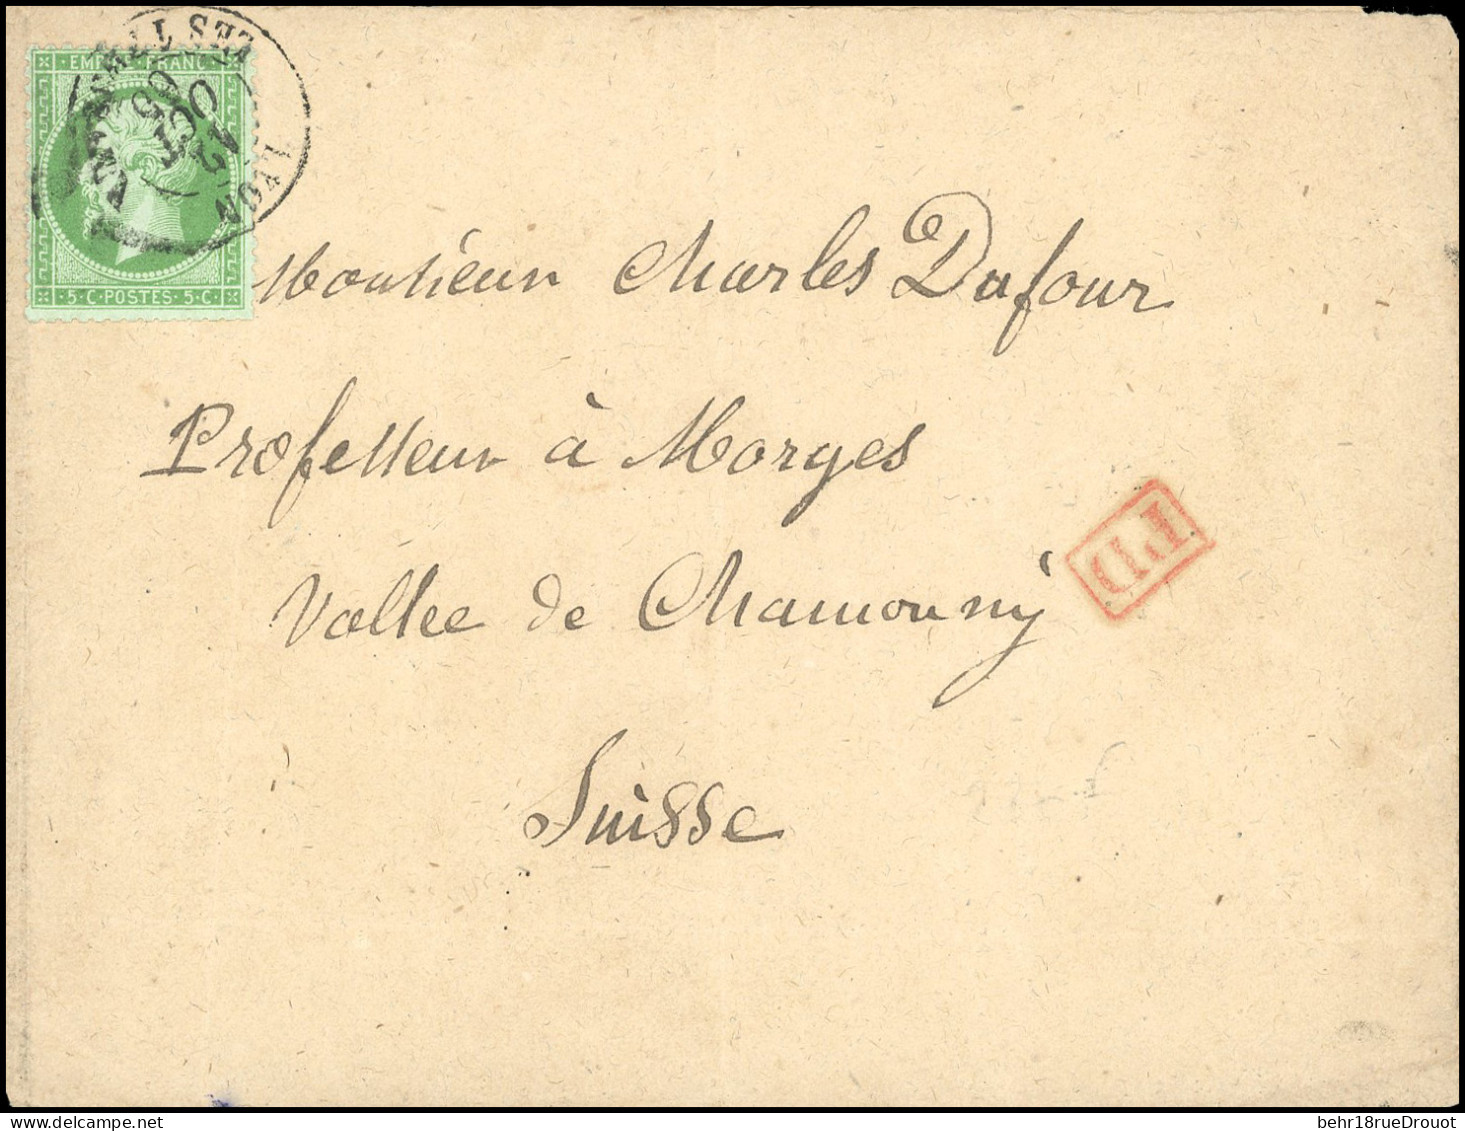 EMP FRANC
5·C·POSTES·5·C
LYON
OCT
Monsieur Charles Dufour
Professeur à Morges
PD
Vallée de Chamouny
Suisse
behr18rueDrouot